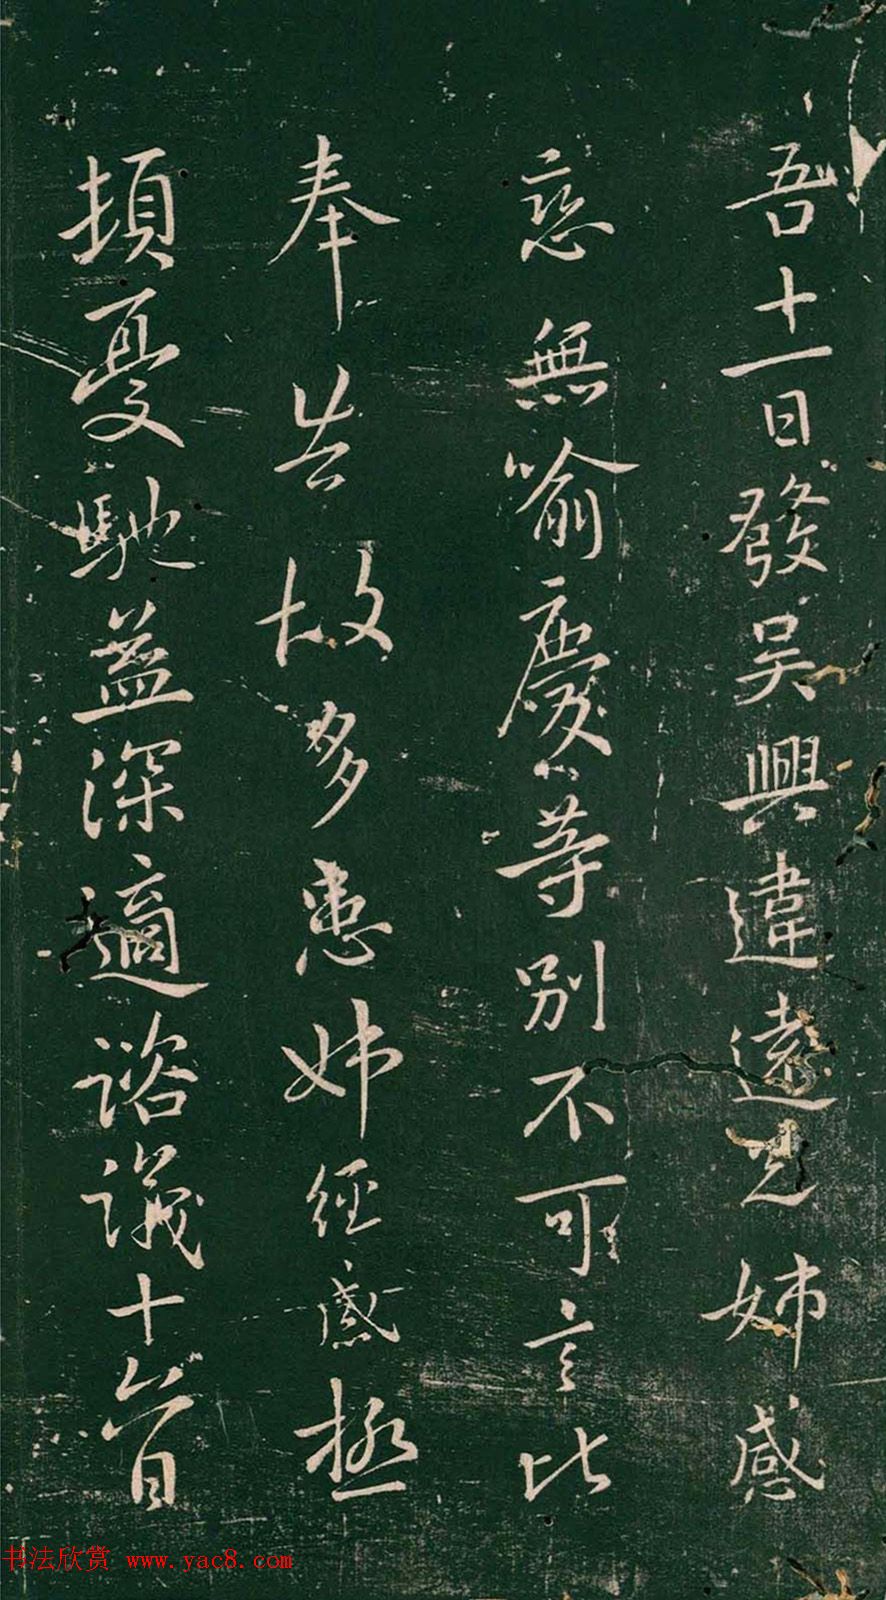 吾十一日發吳興違遠兄姊感
戀無喻慶等別不可言比
奉告故多患姊經感極
頓憂馳益深適諮議十六日
书法欣赏 www.yac8.com